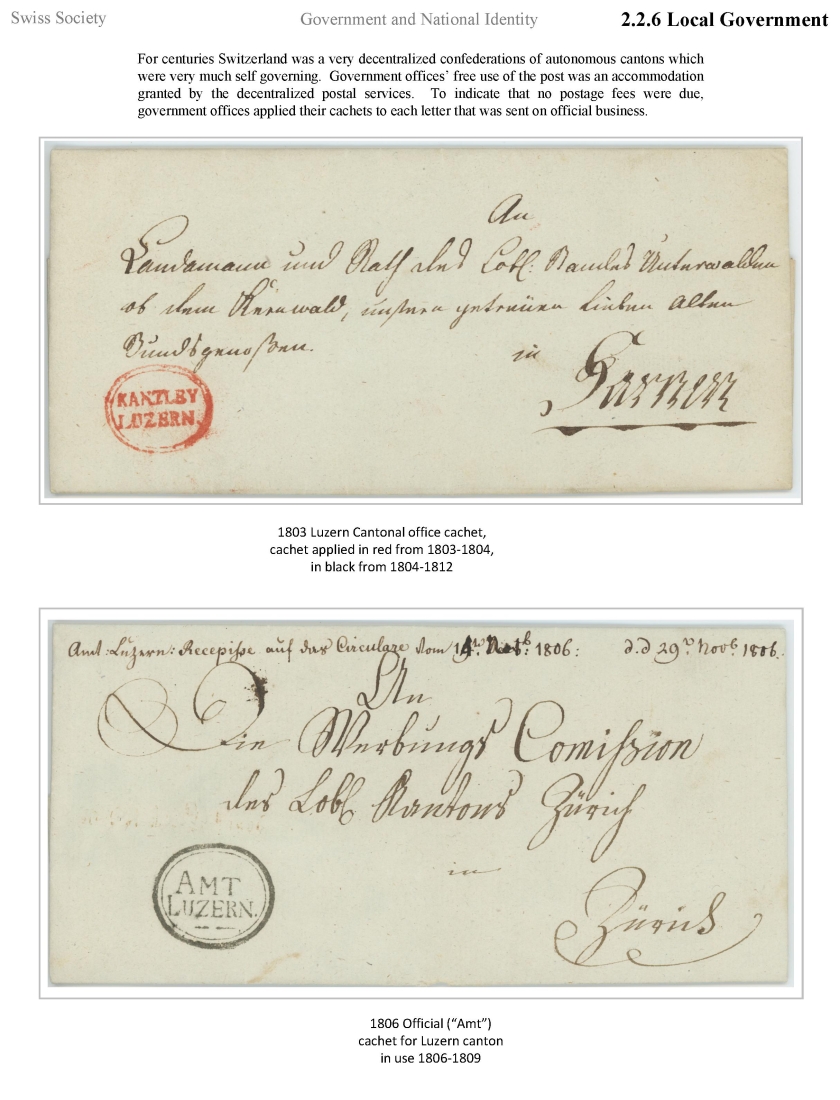 Swiss Society
Government and National Identity
2.2.6 Local Government
For centuries Switzerland was a very decentralized confederations of autonomous cantons which
were very much self governing. Government offices' free use of the post was an accommodation
granted by the decentralized postal services. To indicate that no postage fees were due,
government offices applied their cachets to each letter that was sent on official business.
An
Landamann und Rath des Lobl: Kandes Unterwalden
ob dem Kernwald, unsern getreüen lieben Alten
Bundsgenoßen.
in
Sarnen
KANZLEY
LUZERN.
1803 Luzern Cantonal office cachet,
cachet applied in red from 1803-1804,
in black from 1804-1812
Amt: Luzern: Recepisse auf das Circulare vom 1806: d.d 29n. Novb. 1806.
An
Die Werbungs Comission
des Lobl Kantons Zürich
in
Zürich
AMT
LUZERN.
1806 Official ("Amt")
cachet for Luzern canton
in use 1806-1809